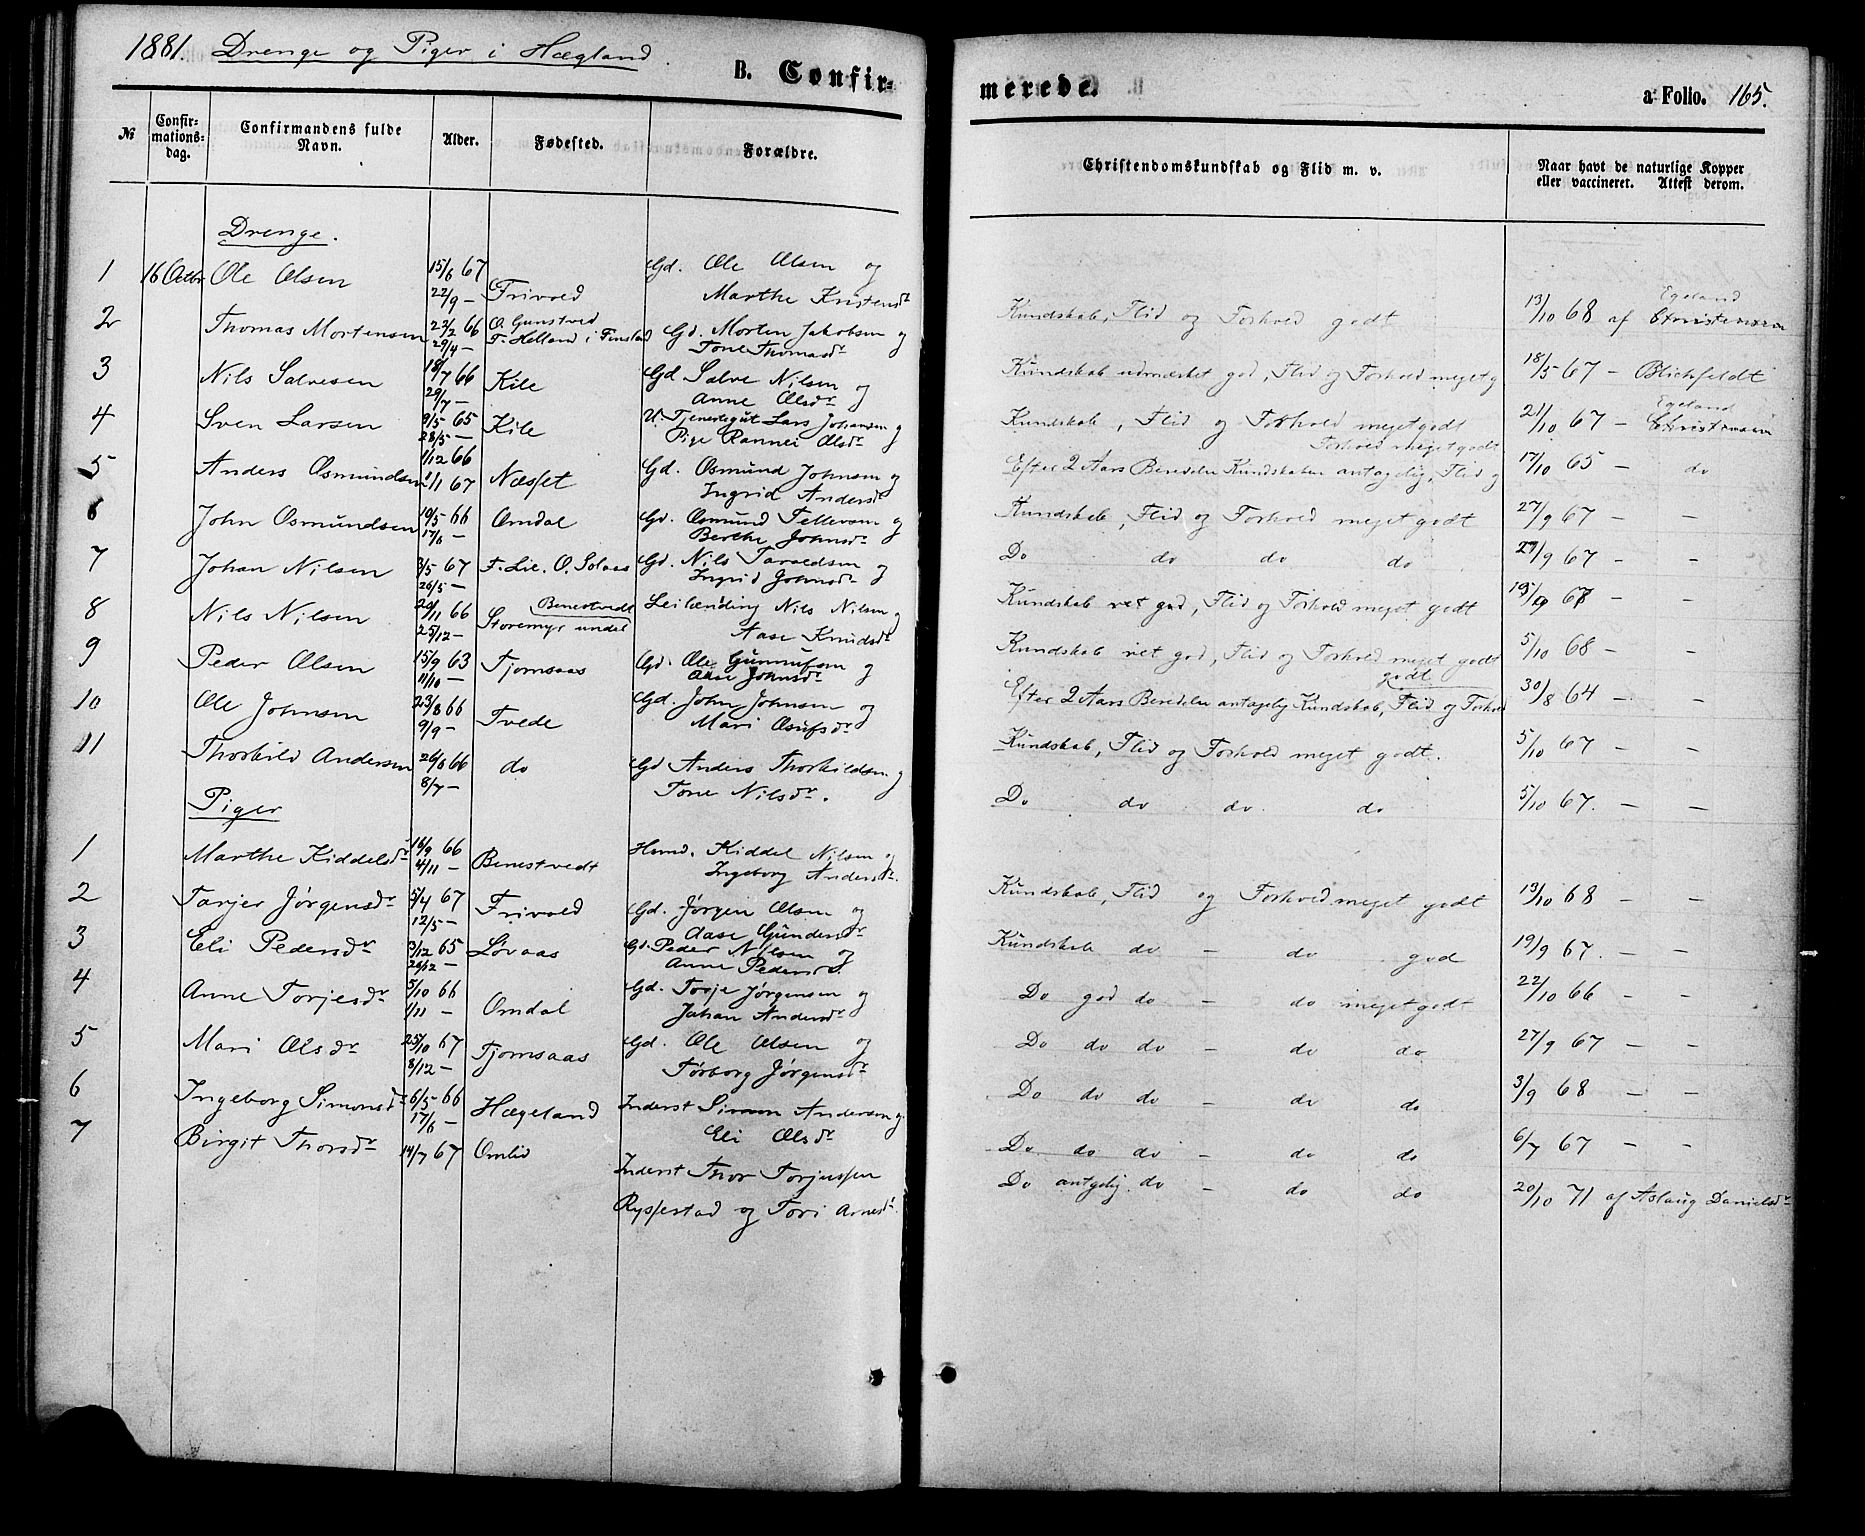 1881. Drenge og Piger i Hægland.
B. Confir-
merede.
a: Folio. 165.
№
Confir-
mations-
dag.
Confirmandens fulde
Navn.
Alder.
Fødested.
Forældre.
Christendomskundskab og Flid m. v.
Naar havt de naturlige Kopper
eller vaccineret. Attest derom.
Drenge.
1 16 Octbr Ole Olsen 15/6 67 Gd. Ole Olsen og
22/9 — Frivold Marthe Kristensdr
Kundskab, Flid og Forhold godt 13/10 68 af Egeland Christensen
2 Thomas Mortensen 22/2 66 O. Gunstved Gd. Morten Jakobsen og
29/4 — F. Helland i Finsland Tone Thomasdr
Kundskab udmærket god, Flid og Forhold meget g 18/5 67 — Blichfeldt
3 Nils Salvesen 18/7 66 Kile Gd Salve Nilsen og
29/7 — Anne Olsdr
Kundskab, Flid og Forhold meget godt 21/10 67 — Egeland Christensen
4 Sven Larsen 9/5 65 Kile U. Tjenestegut Lars Johansen og
28/5 — Pige Rannei Olsdr
Forhold meget godt
Efter 2 Aars Beredelse Kundskaben antagelig, Flid og 17/10 65 — do
5 Anders Osmundsen 1/12 66 Næsset Gd. Osmund Johnsen og
1/1 67 Ingrid Andersdr
Kundskab, Flid og Forhold meget godt 27/9 67 — —
6 John Osmundsen 19/5 66 Omdal Gd. Osmund Tellevsen og
17/6 — Berthe Johnsdr
Do do do do 27/9 67 — —
7 Johan Nilsen 3/5 67 F. Lie. O. Solaas Gd. Nils Taraldsen og
26/5 — Ingrid Johnsdr
Kundskab ret god, Flid og Forhold meget godt 67 — —
8 Nils Nilsen 20/11 66 Benestvedt Leilænding Nils Nilsen og
25/12 — Storemyr undel Aase Knudsdr
Kundskab ret god, Flid og Forhold meget godt 5/10 68 — —
9 Peder Olsen 15/9 63 Tjomsaas Gd. Ole Gunnufsen og
11/10 — Aase Johnsdr
godt
Efter 2 Aars Beredelse antagelig Kundskab, Flid og Forhold 30/8 64 — —
10 Ole Johnsen 23/8 66 Tvede Gd. John Johnsen og
9/9 — Mari Osufsdr
Kundskab, Flid og Forhold meget godt. 5/10 67 — —
11 Thorkild Andersen 26/6 66 do Gd Anders Thorkildsen og
8/7 — Tone Nilsdr.
Do do do do 5/10 67. — —
Piger
1 Marthe Kiddelsdr 18/9 66 Benestvedt Hmd. Kiddel Nilsen og
4/11 — Ingeborg Andersdr.
Kundskab, Flid og Forhold meget godt 13/10 68 — —
2 Tarjer Jørgensdr 5/4 67 Frivold Gd. Jørgen Olsen og
12/5 — Aase Gundersdr
Kundskab do — do god 19/9 67. — —
3 Eli Pedersdr 3/12 65 Løvaas Gd. Peder Nilsen og
26/12 — Anne Pedersdr
Do god do — do meget godt 22/10 66 — —
4 Anne Torjesdr 5/10 66 Omdal Gd. Torje Jørgensen og
1/11 — Johan Andersdr
Do do do — do do 27/9 67 — —
5 Mari Olsdr 25/10 67 Tjomsaas Gd. Ole Olsen og
8/12 — Torborg Jørgensdr
Do do do — do do 3/9 68 — —
6 Ingeborg Simonsdr 6/5 66 Hægeland Inderst Simon Andersen og
17/6 — Eli Olsdr
Do do do — do do 6/7 67 — —
7 Birgit Thorsdr 14/7 67 Omlid Inderst Thor Torjussen
Rysstad og Tori Arnesdr.
Do antgelig. do — do do 20/10 71 af Aslaug Danielsdr